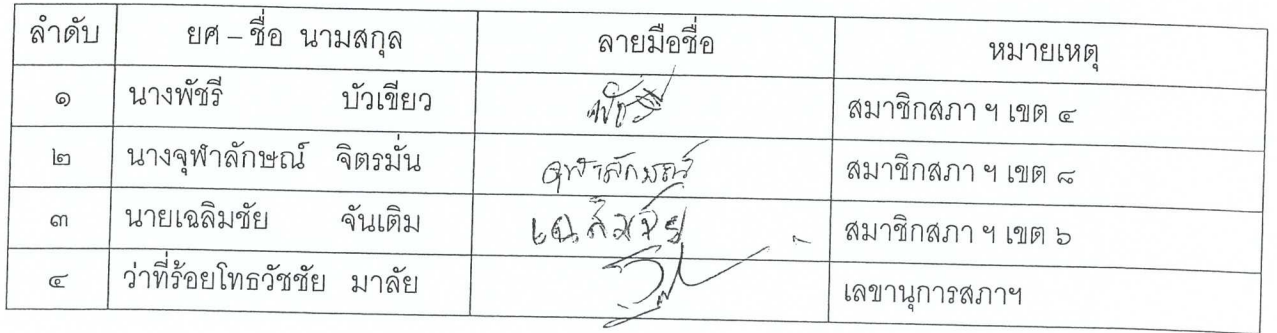 ลำดับ ยศ – ชื่อ นามสกุล ลายมือชื่อ หมายเหตุ
๑ นางพัชรี บัวเขียว พัชรี สมาชิกสภา ฯ เขต ๔
๒ นางจุฬาลักษณ์ จิตรมั่น จุฬาลักษณ์ สมาชิกสภา ฯ เขต ๘
๓ นายเฉลิมชัย จันเติม เฉลิมชัย สมาชิกสภา ฯ เขต ๖
๔ ว่าที่ร้อยโทธวัชชัย มาลัย เลขานุการสภาฯ